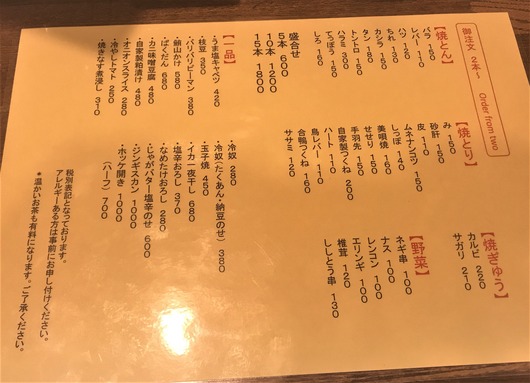 御注文 2本〜 Order from two
【焼とん】
バラ 150
レバー 110
ハツ 120
ちれ 130
カシラ 150
タン 180
トントロ 150
ハラミ 300
てっぽう 150
しろ 160
【焼とり】
み 150
砂肝 150
皮 110
ムネナンコツ 150
しっぽ 140
美唄焼 160
せせり 150
手羽先 150
自家製つくね 200
ハート 110
鳥レバー 110
合鴨つくね 160
ササミ 120
【焼ぎゅう】
カルビ 220
サガリ 210
【野菜】
ネギ串 100
ナス 100
レンコン 100
エリンギ 100
椎茸 120
ししとう串 130
盛合せ
5本 600
10本 1200
15本 1800
【一品】
・うま塩キャベツ 420
・枝豆 350
・バリバリピーマン 380
・ばくだん 680
・鮪山かけ 580
・カニ味噌豆腐 480
・自家製粕漬け 480
・オニオンスライス 280
・冷やしトマト 250
・焼きなす煮浸し 310
・冷奴 280
・冷奴(たくあん・納豆のせ) 380
・玉子焼 450
・イカ一夜干し 680
・塩辛おろし 370
・なめたけおろし 280
・じゃがバター塩辛のせ 600
・ジンギスカン 1000
・ホッケ開き 1000
(ハーフ) 700
税別表記となっております。
アレルギーある方は事前にお申し付けください。
*温かいお茶も有料になります。ご了承ください。